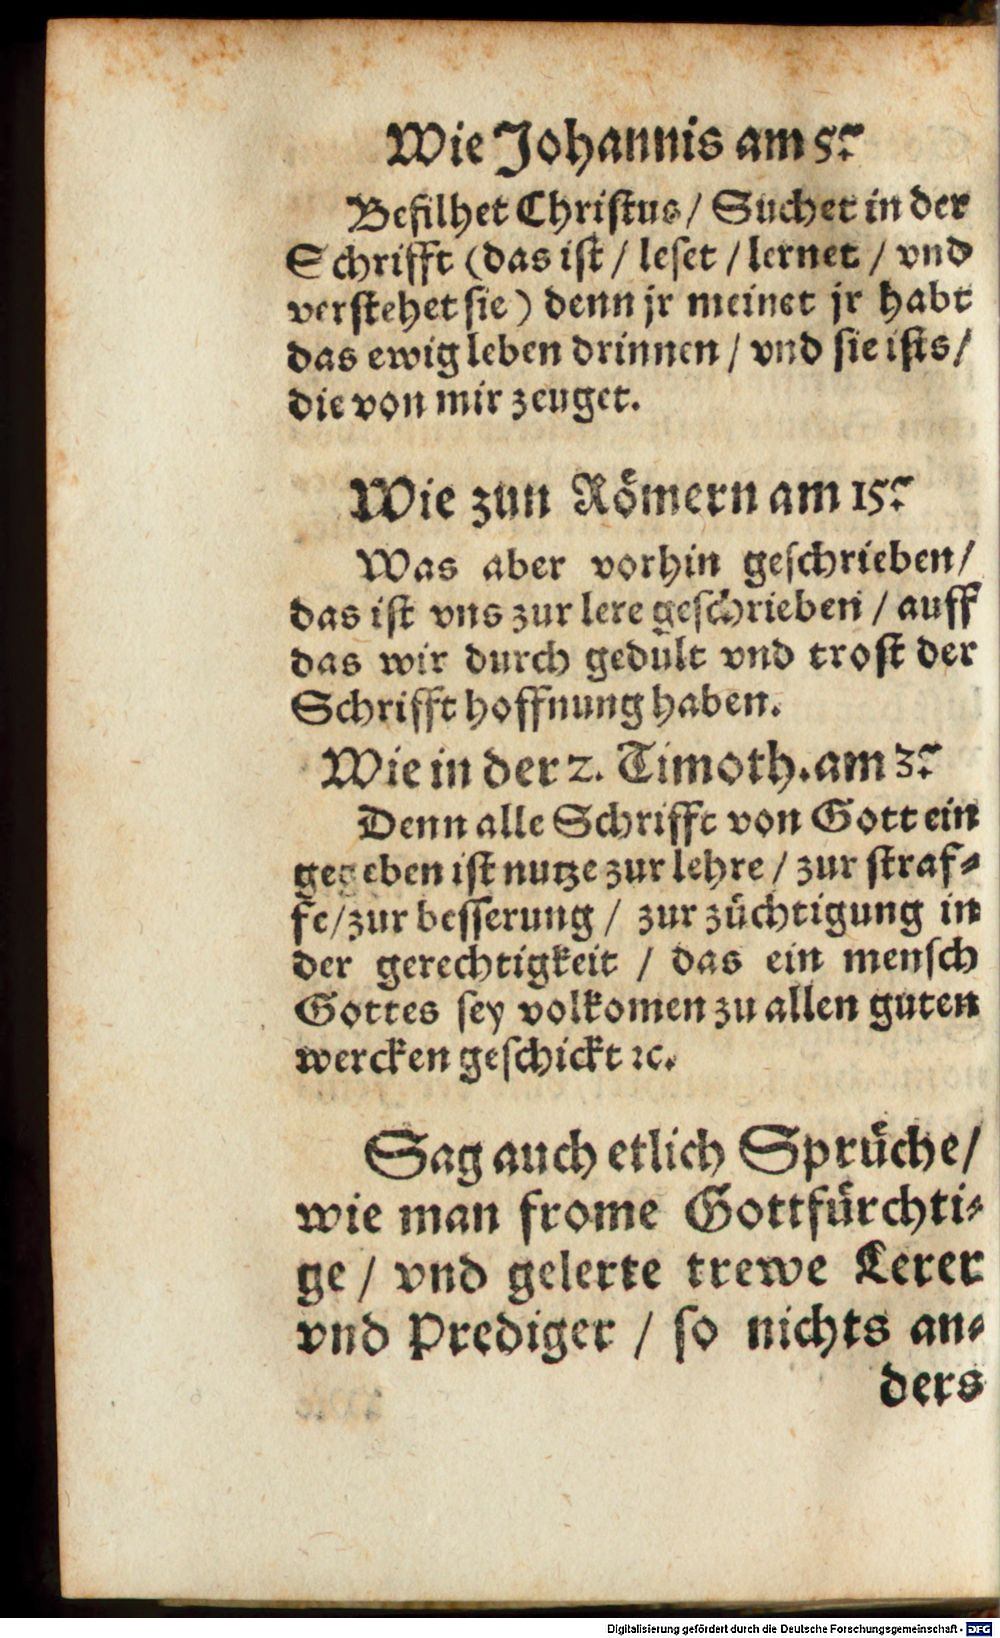 Wie Johannis am 5.
Befilhet Christus / Suchet in der
Schrifft (das ist / leset / lernet / vnd
verstehet sie) denn jr meinet jr habt
das ewig leben drinnen / vnd sie ists /
die von mir zeuget.
Wie zun Römern am 15.
Was aber vorhin geschrieben /
das ist vns zur lere geschrieben / auff
das wir durch gedult vnd trost der
Schrifft hoffnung haben.
Wie in der 2. Timoth. am 3.
Denn alle Schrifft von Gott ein
gegeben ist nutze zur lehre / zur straf-
fe / zur besserung / zur züchtigung in
der gerechtigkeit / das ein mensch
Gottes sey volkomen zu allen guten
wercken geschickt ꝛc.
Sag auch etlich Sprüche /
wie man frome Gottfürchti-
ge / vnd gelerte trewe Lerer
vnd Prediger / so nichts an-
ders
Digitalisierung gefördert durch die Deutsche Forschungsgemeinschaft - DFG